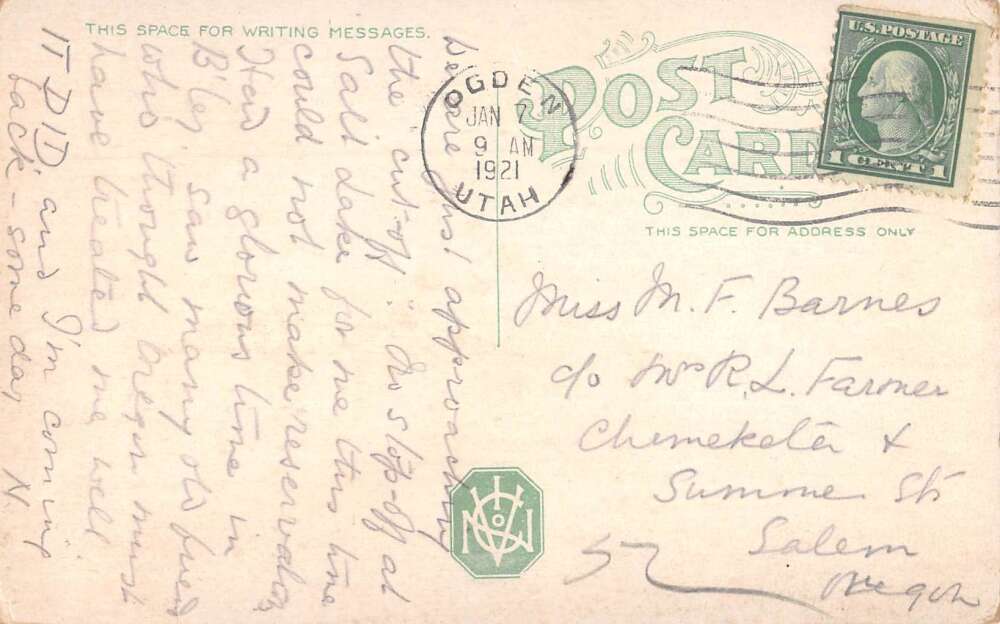 THIS SPACE FOR WRITING MESSAGES.
We are just approaching
"the cut-off". No stop-off at
Salt Lake for me this time
could not make reservation
Had a glorious time in
B'ley saw many old friends
who thought Oregon must
have treated me well
IT DID and I'm coming
back - some day N.
OGDEN
JAN 7
9 AM
1921
UTAH
POST
CARD
U.S. POSTAGE
1 CENT 1
THIS SPACE FOR ADDRESS ONLY
Miss M. F. Barnes
c/o Mrs R. L. Farmer
Chemeketa &
Summer Sts
Salem
Oregon